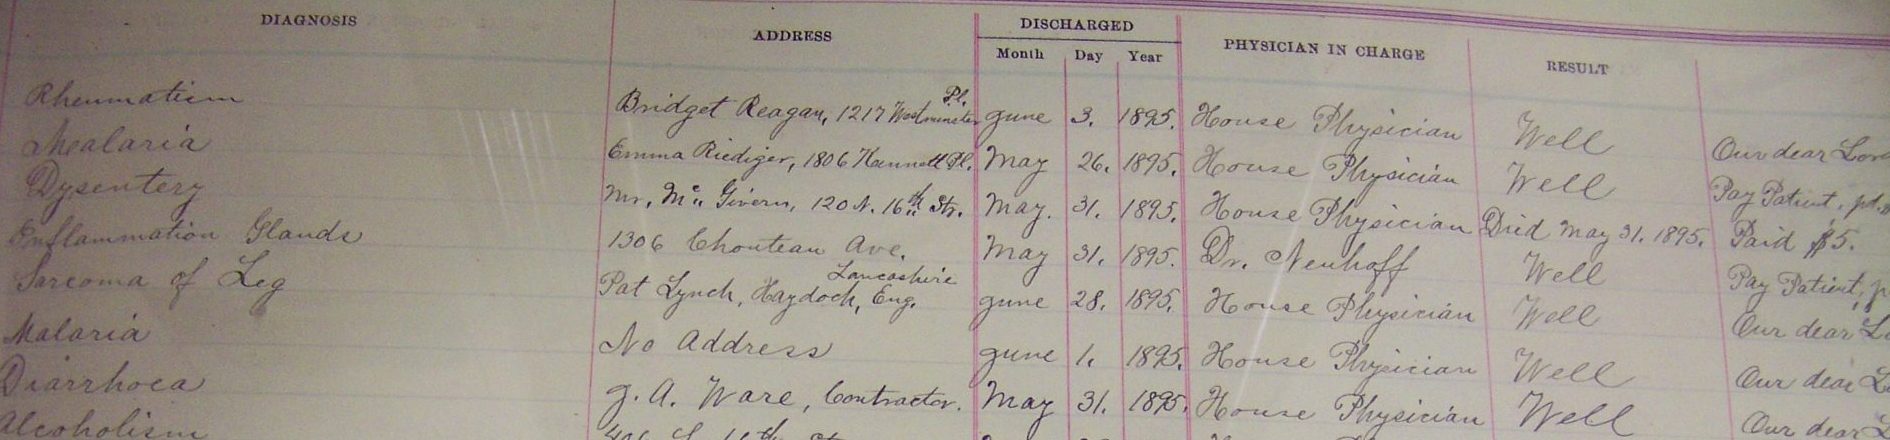 DIAGNOSIS ADDRESS DISCHARGED PHYSICIAN IN CHARGE RESULT
Month Day Year
Rheumatism Bridget Reagan, 1217 Westminster Pl. June 3. 1895. House Physician Well Our dear Lord
Malaria Emma Riediger, 1806 Pl. May 26. 1895. House Physician Well Pay Patient, pt.
Dysentery Mr. Mc Givern, 120 N. 16th Str. May. 31. 1895. House Physician Died May 31. 1895. Paid $5.
Inflammation Glands 1306 Chouteau Ave. May 31. 1895. Dr. Neuhoff Well Pay Patient, p
Sarcoma of Leg Pat Lynch, Haydock, Lancashire Eng. June 28. 1895. House Physician Well Our dear Lo
Malaria No Address June 1. 1895. House Physician Well Our dear L
Diarrhoea G. A. Ware, Contractor. May 31. 1895. House Physician Well Our dear
Alcoholism